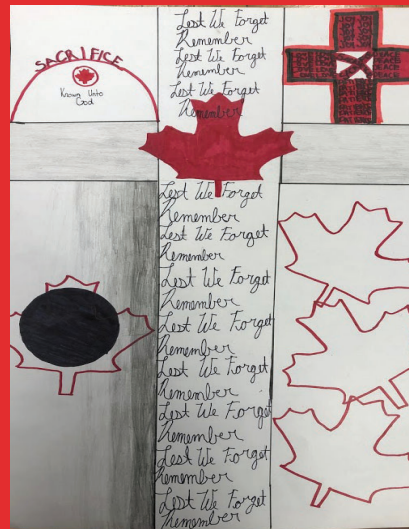 SACRIFICE
Known Unto
God
Lest We Forget
Remember
Lest We Forget
Remember
Lest We Forget
Remember
Lest We Forget
Remember
Lest We Forget
Remember
Lest We Forget
Remember
Lest We Forget
Remember
Lest We Forget
Remember
Lest We Forget
Remember
Lest We Forget
Remember
Lest We Forget
Remember